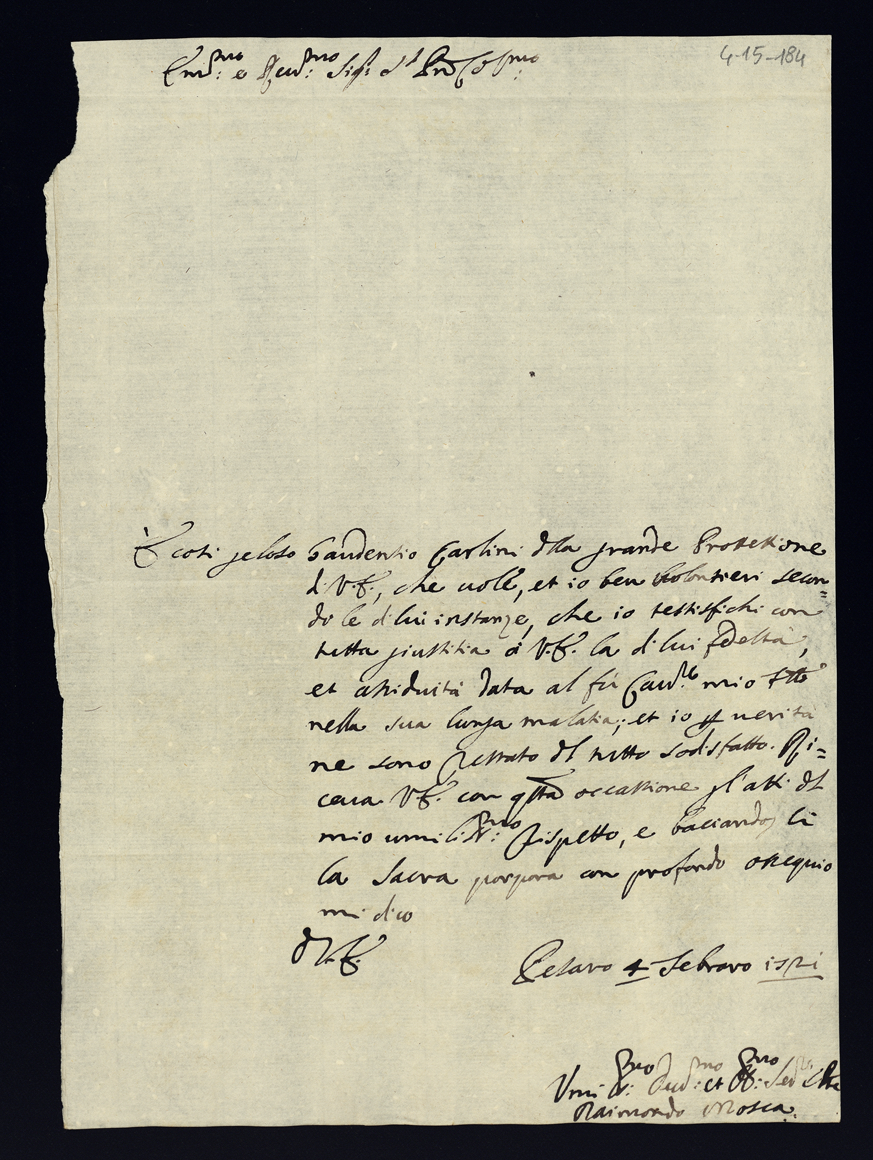 4-15-184
Em.mo e Rev.mo Sig.r Pron Col.mo
È così geloso Gaudentio Carlini dlla grande Protettione
di V.E., che vole, et io ben volontieri secon=
do le di lui instanze, che io testifichi con
tutta giustitia à V.E. la di lui fedeltà,
et assiduità data al fù Cav.re mio Fr̃llo
nella sua lunga malatia; et io p verità
ne sono restato dl tutto sodisfatto. Ri=
ceva V.E. con qsta occassione gl'atti dl
mio umiliss.mo rispetto, e baciandoli
la Sacra porpora con profondo ossequio
mi dico
D V.E.
Pesaro 4 Febraro
Umi.mo Dev.mo et Obb.mo
Raimondo Mosca